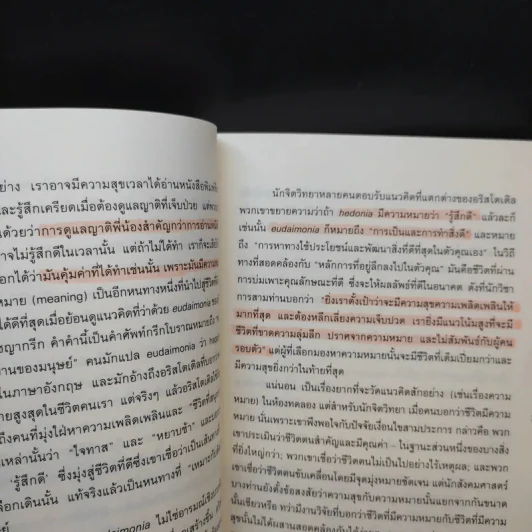 ย่าง เราอาจมีความสุขเวลาได้อ่านหนังสือพิมพ์
และรู้สึกเครียดเมื่อต้องดูแลญาติที่เจ็บป่วย แต่
ด้วยว่าการดูแลญาติพี่น้องสำคัญกว่าการอ่าน
อาจไม่รู้สึกดีในเวลานั้น แต่ถ้าไม่ได้ทำ เราก็จะ
อกได้ว่ามันคุ้มค่าที่ได้ทำเช่นนั้น เพราะมันมี
หมาย (meaning) เป็นอีกหนทางหนึ่งที่นำไปสู่
ได้ดีที่สุดเมื่อย้อนดูแนวคิดที่ว่าด้วย eudaimonia ของ
ชญากรีก คำคำนี้เป็นคำศัพท์กรีกโบราณหมายถึง
านของมนุษย์" คนมักแปล eudaimonia ว่า
ในภาษาอังกฤษ และมักอ้างถึงอริสโตเติลที่บอกว่า
ายสูงสุดในชีวิตคนเรา แต่จริงๆ แล้วอริสโตเติล
ถึงคนที่มุ่งใฝ่หาความเพลิดเพลินและ "ชีวิตที่
เหล่านั้นว่า "ใจทาส" และ "หยาบช้า" และ
"รู้สึกดี" ซึ่งมุ่งสู่ชีวิตที่ดีซึ่งเขาเชื่อว่าเป็นเส้น
เลือกเดินนั้น แท้จริงแล้วเป็นหนทางที่
eudaimonia ไม่ใช่อารมณ์
นักจิตวิทยาหลายคนตอบรับแนวคิดที่แตกต่างของอริสโตเติล
พวกเขาขยายความว่าถ้า hedonia มีความหมายว่า "รู้สึกดี" แล้วละก็
เช่นนั้น eudaimonia ก็หมายถึง "การเป็นและการทำสิ่งดี" และหมาย
ถึง "การหาทางใช้ประโยชน์และพัฒนาสิ่งที่ดีที่สุดในตัวคุณเอง" ในวิถี
ทางที่สอดคล้องกับ "หลักการที่อยู่ลึกลงไปในตัวคุณ" มันคือชีวิตที่ผ่าน
การบ่มเพาะคุณลักษณะที่ดี ซึ่งจะให้ผลลัพธ์ที่ดีในอนาคต ดังที่นักวิชา
การสามท่านบอกว่า "ยิ่งเราตั้งเป้าว่าจะมีความสุขความเพลิดเพลินให้
มากที่สุด และต้องหลีกเลี่ยงความเจ็บปวด เรายิ่งมีแนวโน้มสูงที่จะมี
ชีวิตที่ขาดความลุ่มลึก ปราศจากความหมาย และไม่สัมพันธ์กับผู้คน
รอบตัว" แต่ผู้ที่เลือกมองหาความหมายนั้นจะมีชีวิตที่เต็มเปี่ยมกว่าและ
มีความสุขยิ่งกว่าในท้ายที่สุด
แน่นอน เป็นเรื่องยากที่จะวัดแนวคิดสักอย่าง (เช่นเรื่องความ
หมาย) ในห้องทดลอง แต่สำหรับนักจิตวิทยา เมื่อคนบอกว่าชีวิตมีความ
หมาย นั่นเพราะเขาพึงพอใจกับปัจจัยเงื่อนไขสามประการ กล่าวคือ พวก
เขาประเมินว่าชีวิตตนสำคัญและมีคุณค่า – ในฐานะส่วนหนึ่งของบางสิ่ง
ที่ยิ่งใหญ่กว่า; พวกเขาเชื่อว่าชีวิตตนไม่เป็นไปอย่างไร้เหตุผล; และพวก
เขาเชื่อว่าชีวิตตนขับเคลื่อนโดยมีจุดมุ่งหมายชัดเจน แต่นักสังคมศาสตร์
บางท่านยังตั้งข้อสงสัยว่าความสุขกับความหมายนั้นแยกจากกันขนาด
นั้นเชียวหรือ ทว่ามีงานวิจัยที่บอกว่าชีวิตที่มีความหมายกับชีวิตที่มีความ
สุขนั้นไม่ได้ผสานสอดคล้องกัน